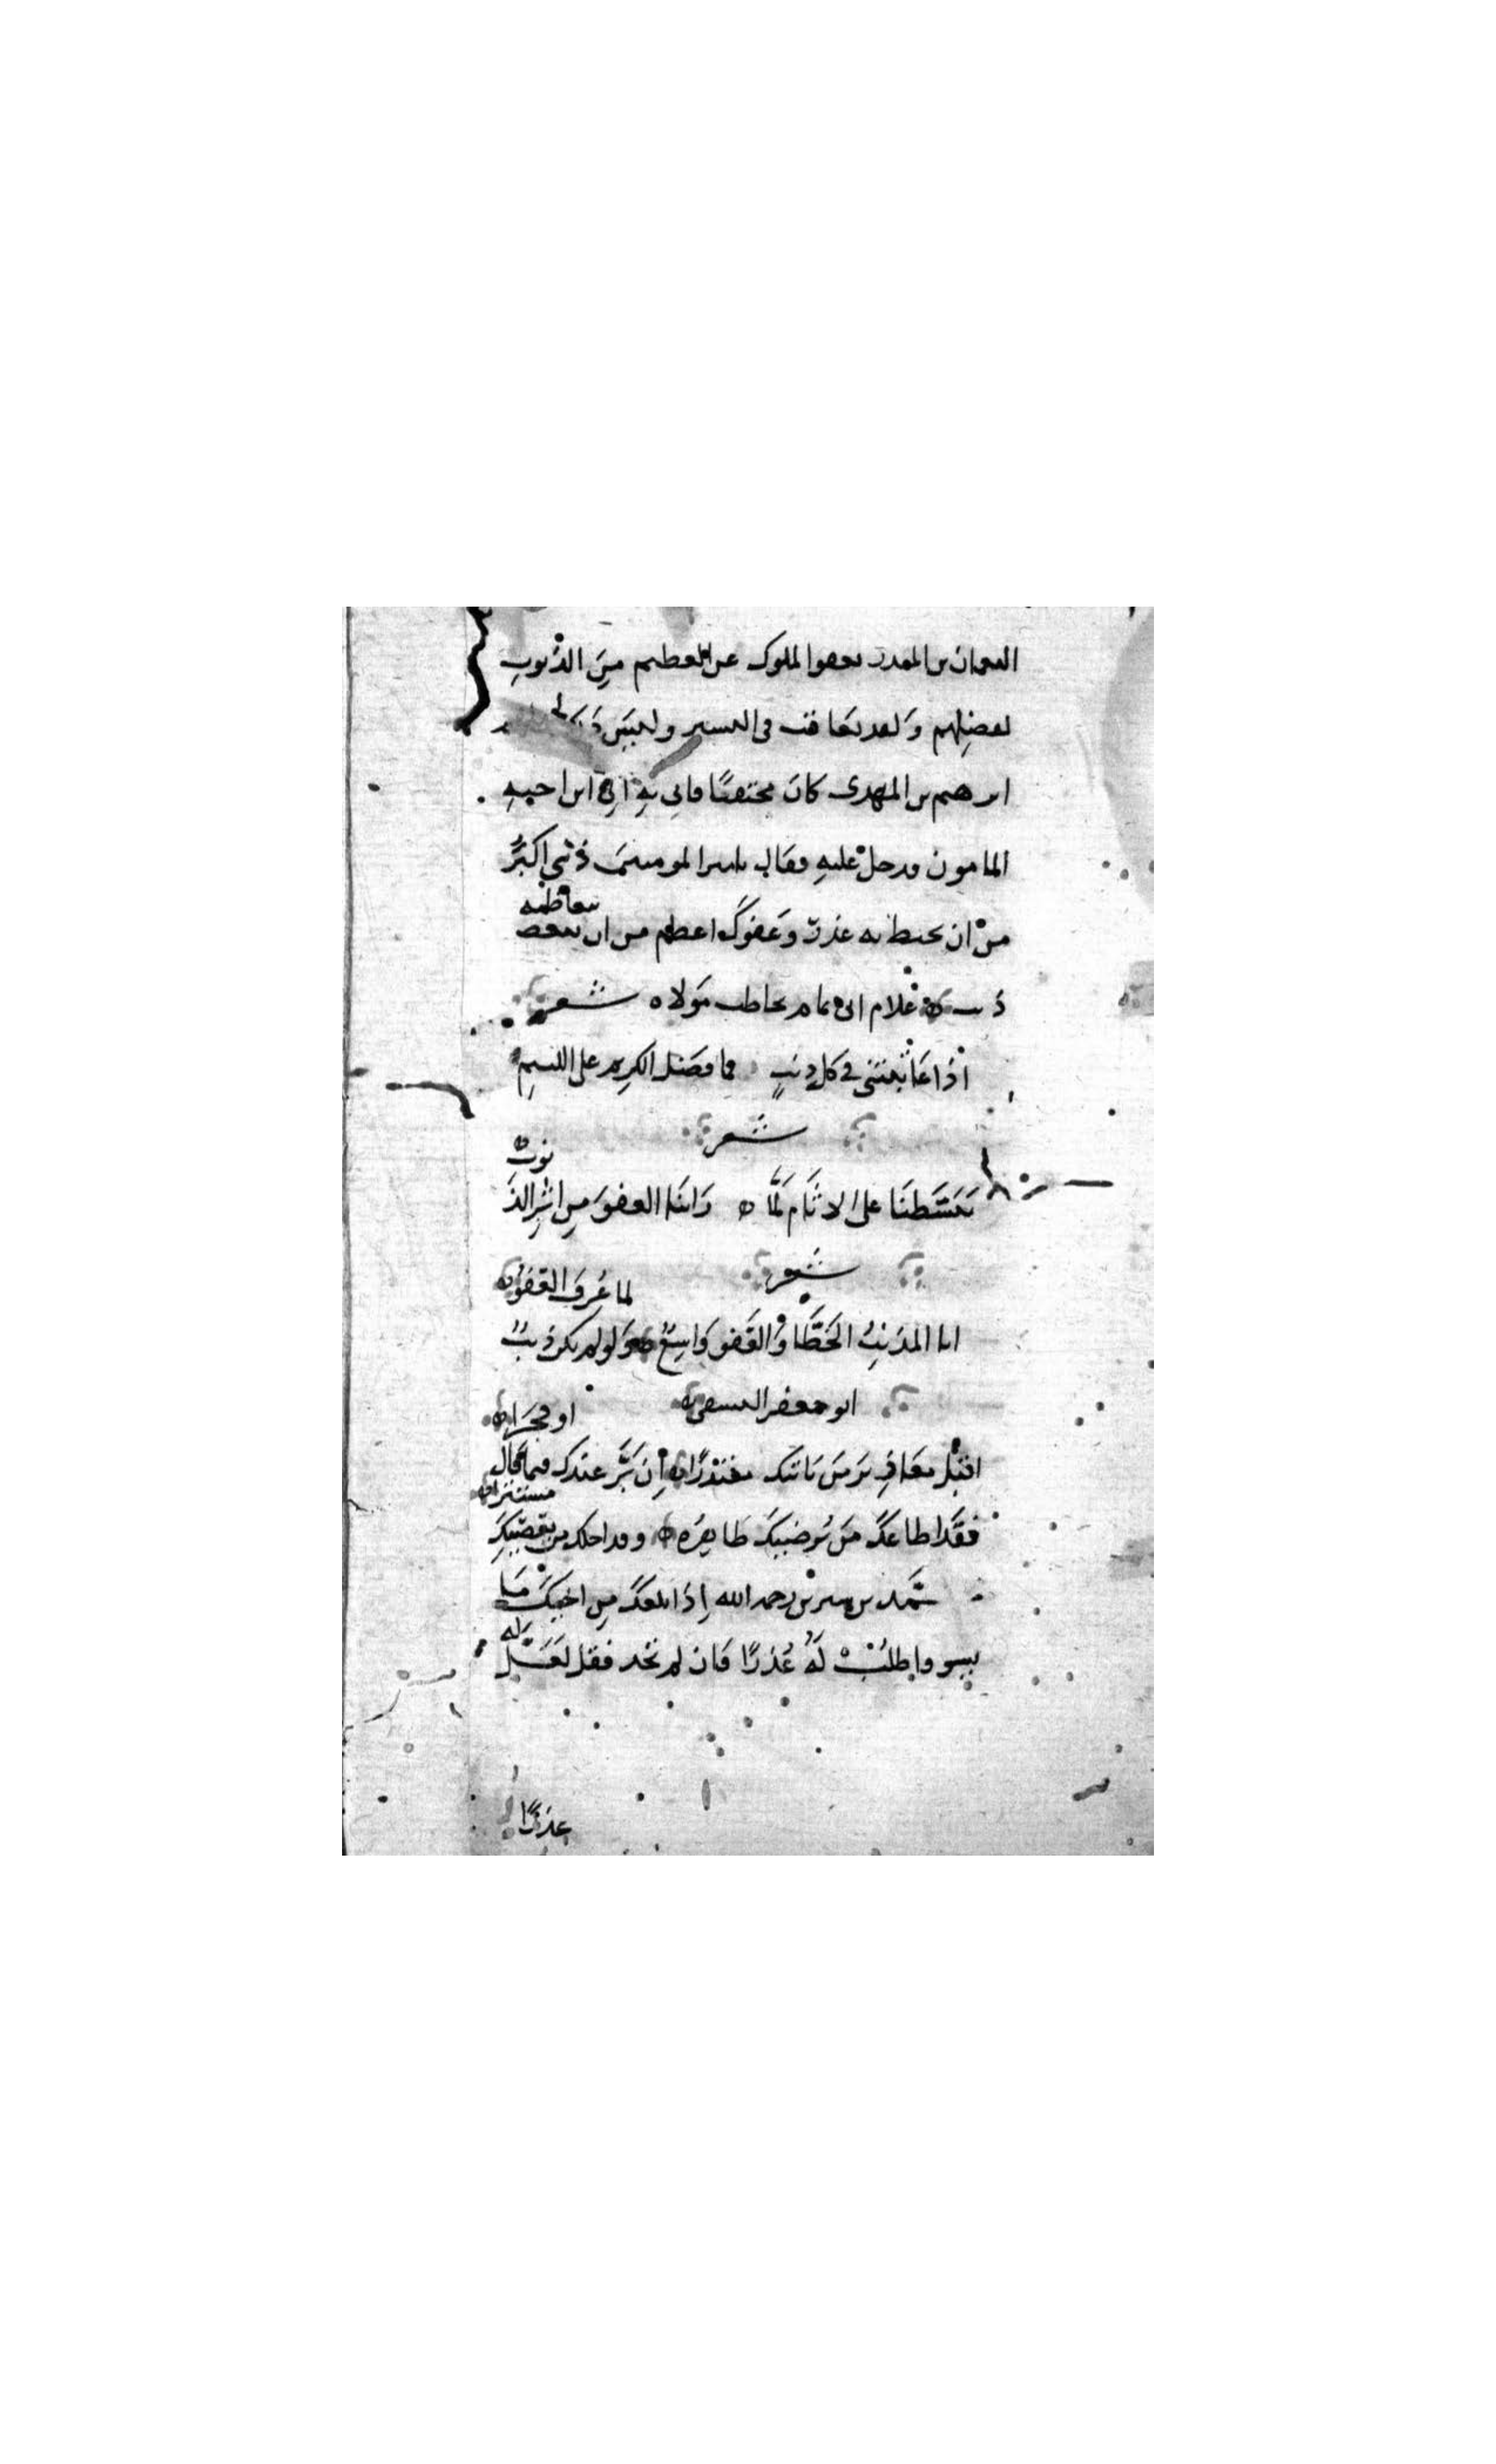 النعمان بن المنذر تعفوا الملوك عن العظيم من الذنوب
لفضلهم ولقد تعاقب في اليسير وليس
ابرهيم بن المهدى كان مختفيًا فاتي به الى ابن اخيه
المامون فدخل عليه فقال يامير المومنين ذنبي اكبر
من ان يحيط به عذر وعفوك اعظم من ان يتعاظمه
ذنب غلام ابى تمام يخاطب مولاه شعر
اذا عاتبتني في كل ذنب فما فضل الكريم على اللئيم
شعر
تبسطنا على الاثام لما راينا العفو من اثر الذنوب
شعر
انا المذنب الخطا والعفو واسع ولو لم يكن ذنب لما عرف العفو
ابو جعفر
اقبل معاذير من ياتيك معتذرًا ان بر عندك فيما قال او فجرا
فقد اطاعك من يرضيك ظاهره وقد اجلك من يعصيك مستترا
محمد بن سيرين رحمه الله اذا بلغك من اخيك ما
يسو فاطلب له عذرًا فان لم تجد فقل لعل له
عذرًا